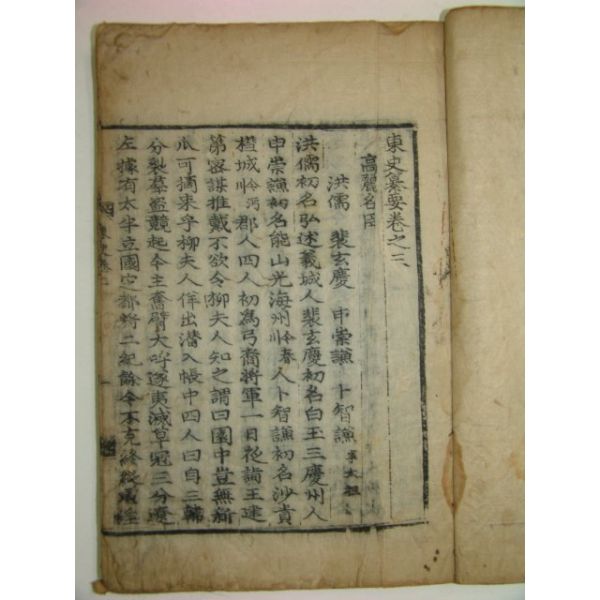 東史纂要卷之三
高麗名臣
洪儒 裴玄慶 申崇謙 卜智謙 事太祖
洪儒初名弘述義城人裴玄慶初名白玉三慶州人
申崇謙初名能山光海州今春川人卜智謙初名沙貴
槥城今沔川郡人四人初爲弓裔將軍一日夜詣王建
第密謀推戴不欲令柳夫人知之謂曰園中豈無新
瓜可摘來乎柳夫人佯出潛入帳中四人曰自三韓
分裂群盜競起今主奮臂大呼遂夷滅草寇三分遼
左據有太半立國定都將二紀餘今不克終縱虐